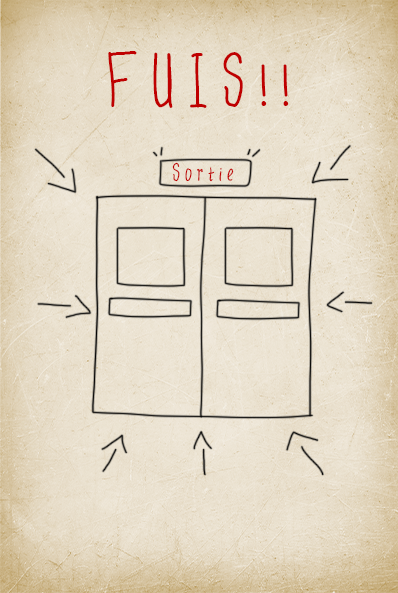 FUIS!!
Sortie